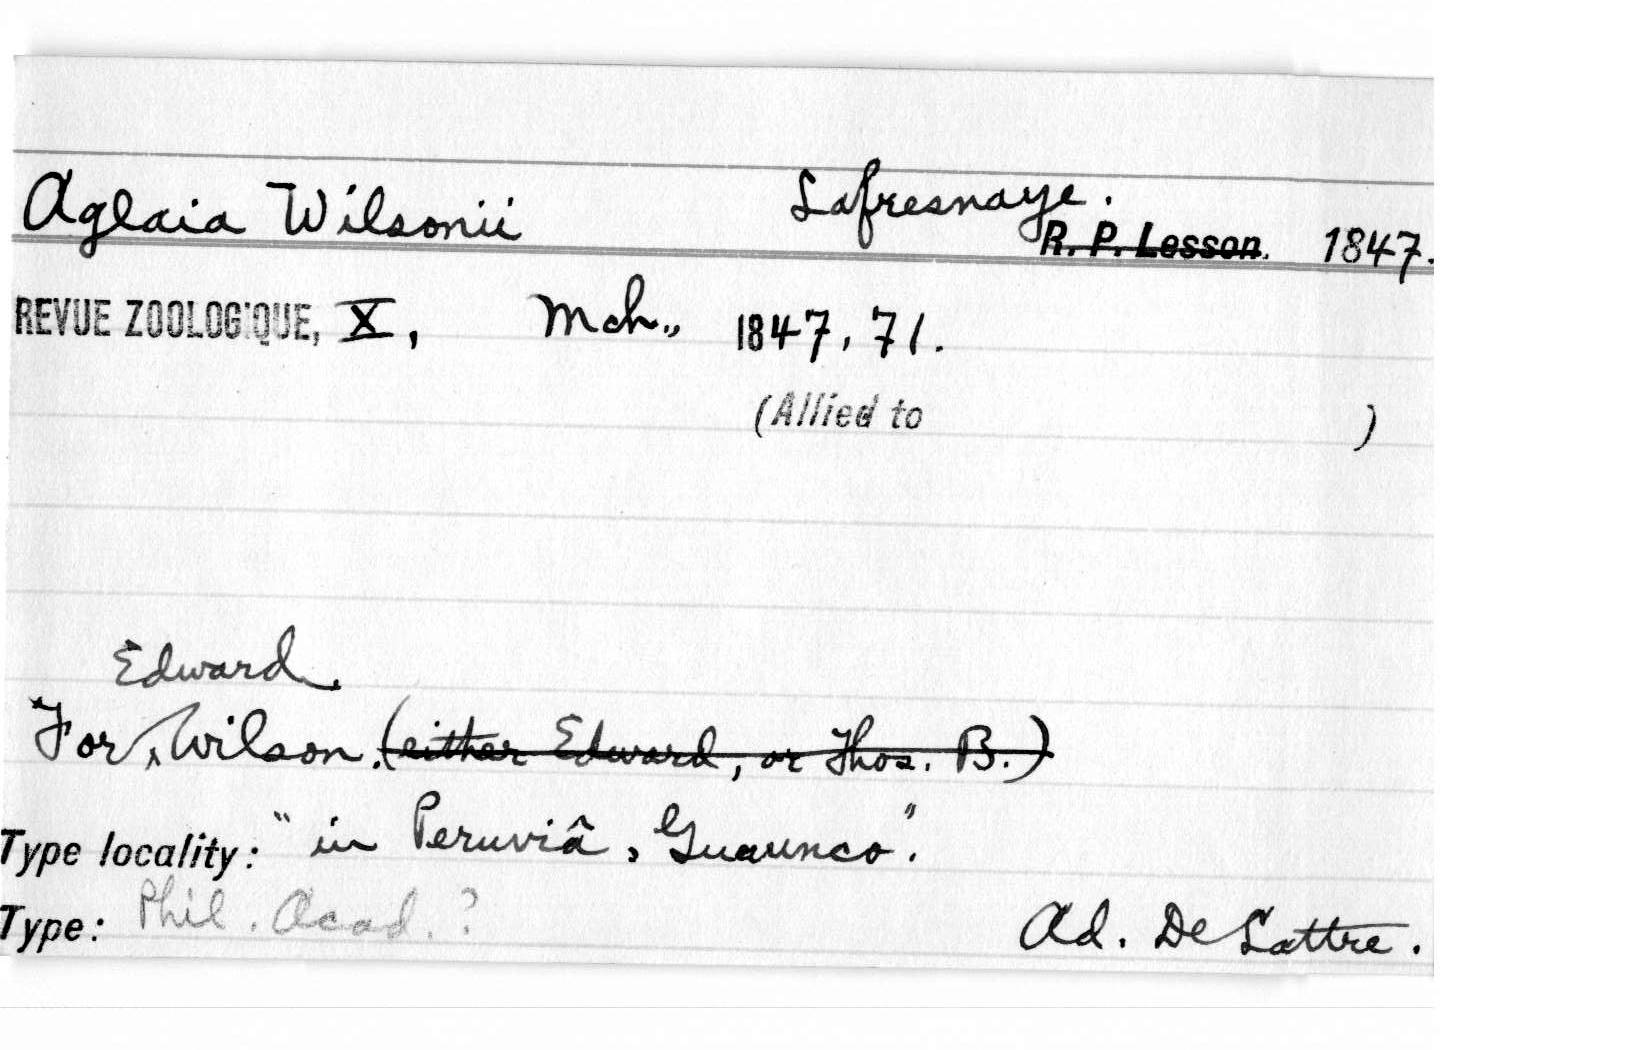 Aglaia Wilsonii Lafresnaye.
R. P. Lesson. 1847.
REVUE ZOOLOGIQUE, X, Mch., 1847, 71.
(Allied to )
Edward
For ^ Wilson. (either Edward, or Thos. B.)
Type locality: "in Peruviâ, Guaunco".
Type: Phil. Acad. ? Ad. De Lattre.